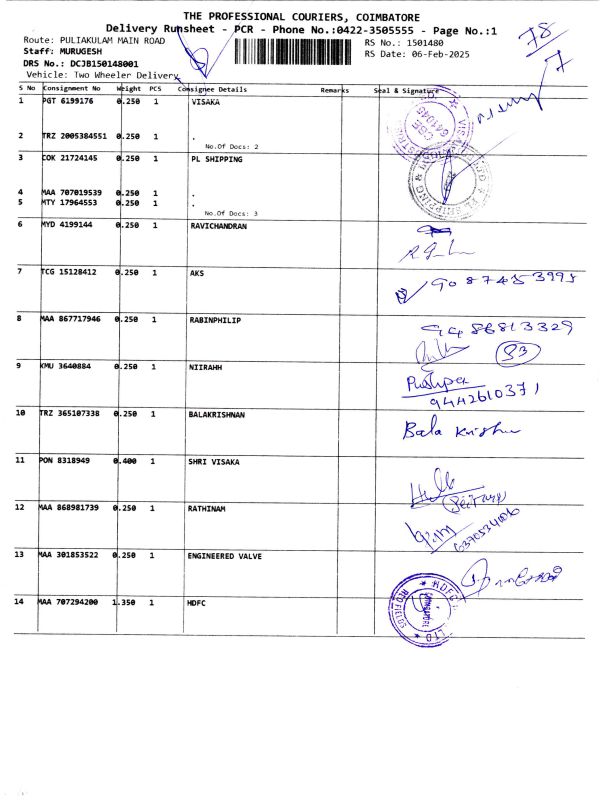 THE PROFESSIONAL COURIERS, COIMBATORE
Delivery Runsheet - PCR - Phone No.:0422-3505555 - Page No.:1
Route: PULIAKULAM MAIN ROAD
RS No.: 1501480
Staff: MURUGESH
RS Date: 06-Feb-2025
DRS No.: DCJB150148001
Vehicle: Two Wheeler Delivery
78
7
S No Consignment No Weight PCS Consignee Details Remarks Seal & Signature
1 PGT 6199176 0.250 1 VISAKA
2 TRZ 2005384551 0.250 1 .
No.Of Docs: 2
3 COK 21724145 0.250 1 PL SHIPPING
4 MAA 707019539 0.250 1 .
5 MTY 17964553 0.250 1 .
No.Of Docs: 3
6 MYD 4199144 0.250 1 RAVICHANDRAN
7 TCG 15128412 0.250 1 AKS
90 87453995
8 MAA 867717946 0.250 1 RABINPHILIP
9486813329
53
9 KMU 3640884 0.250 1 NIIRAHH
Pushpa
9442610371
10 TRZ 365107338 0.250 1 BALAKRISHNAN
Bala Krishn
11 PON 8318949 0.400 1 SHRI VISAKA
12 MAA 868981739 0.250 1 RATHINAM
13 MAA 301853522 0.250 1 ENGINEERED VALVE
14 MAA 707294200 1.350 1 HDFC
COIMBATORE